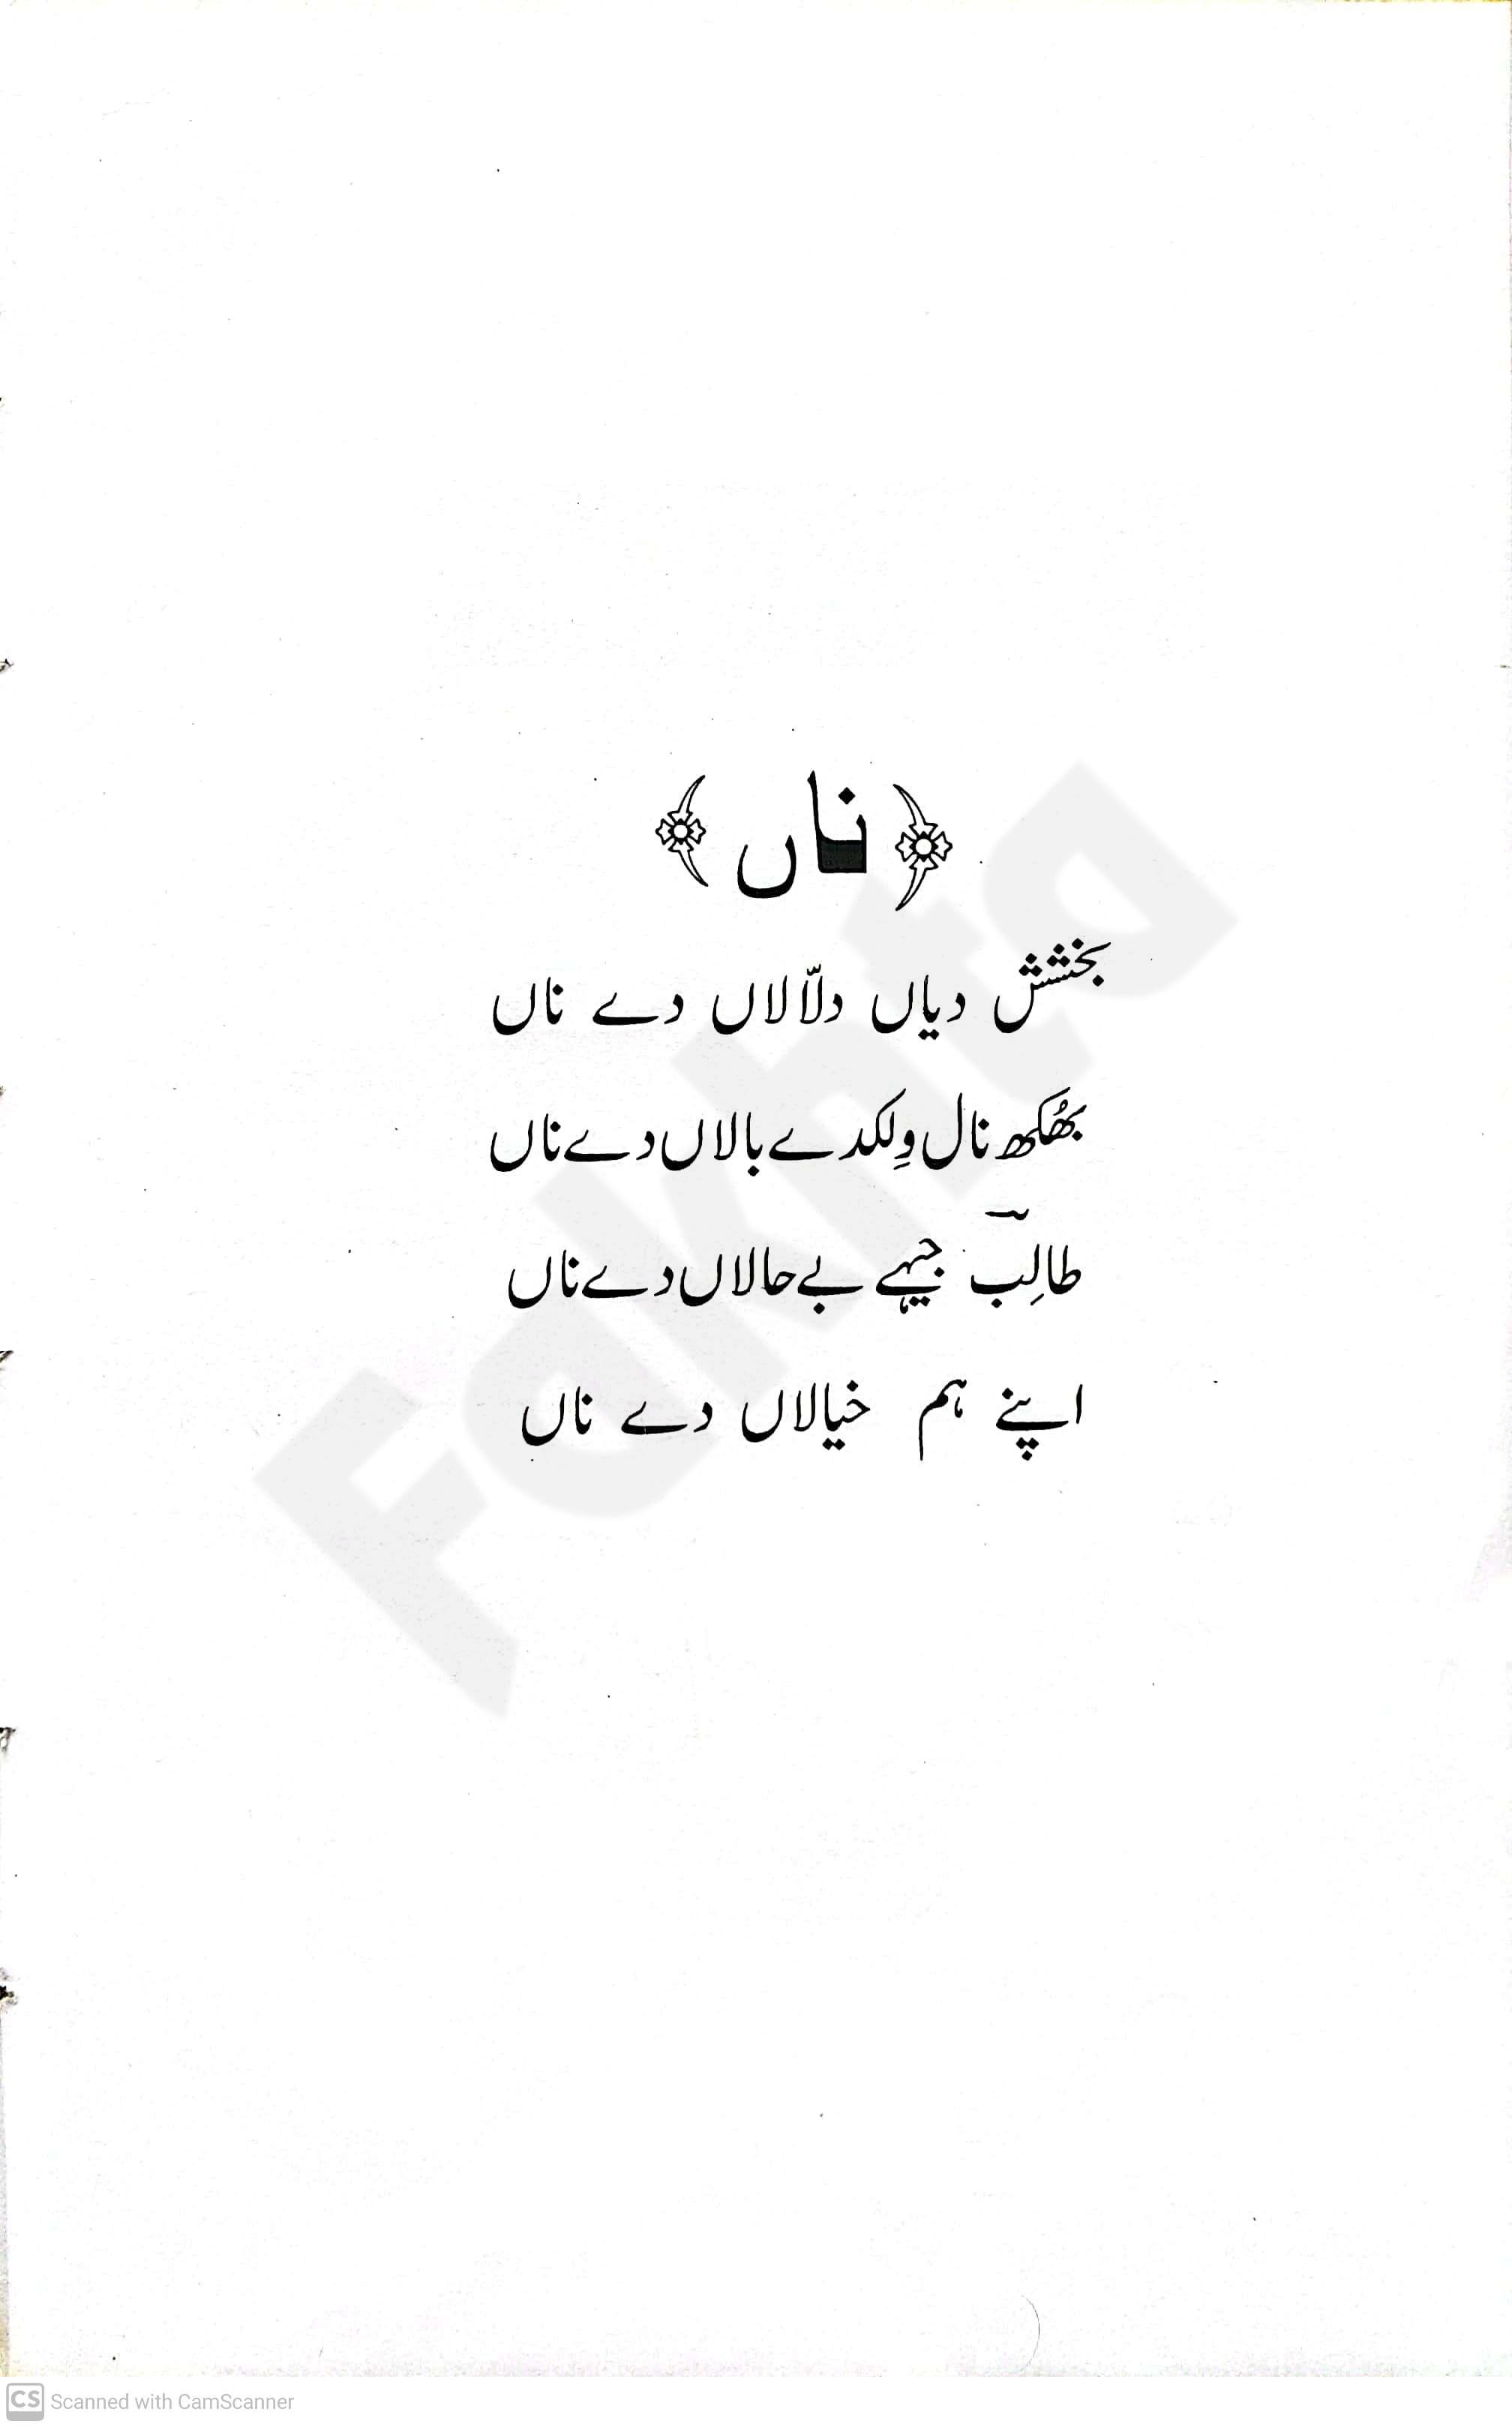 ﴿ناں﴾
بخشش دیاں دلّالاں دے ناں
بھُکھ نال وِلکدے بالاں دے ناں
طالِبؔ جیہے بے حالاں دے ناں
اپنے ہم خیالاں دے ناں
Fakhta
CS Scanned with CamScanner